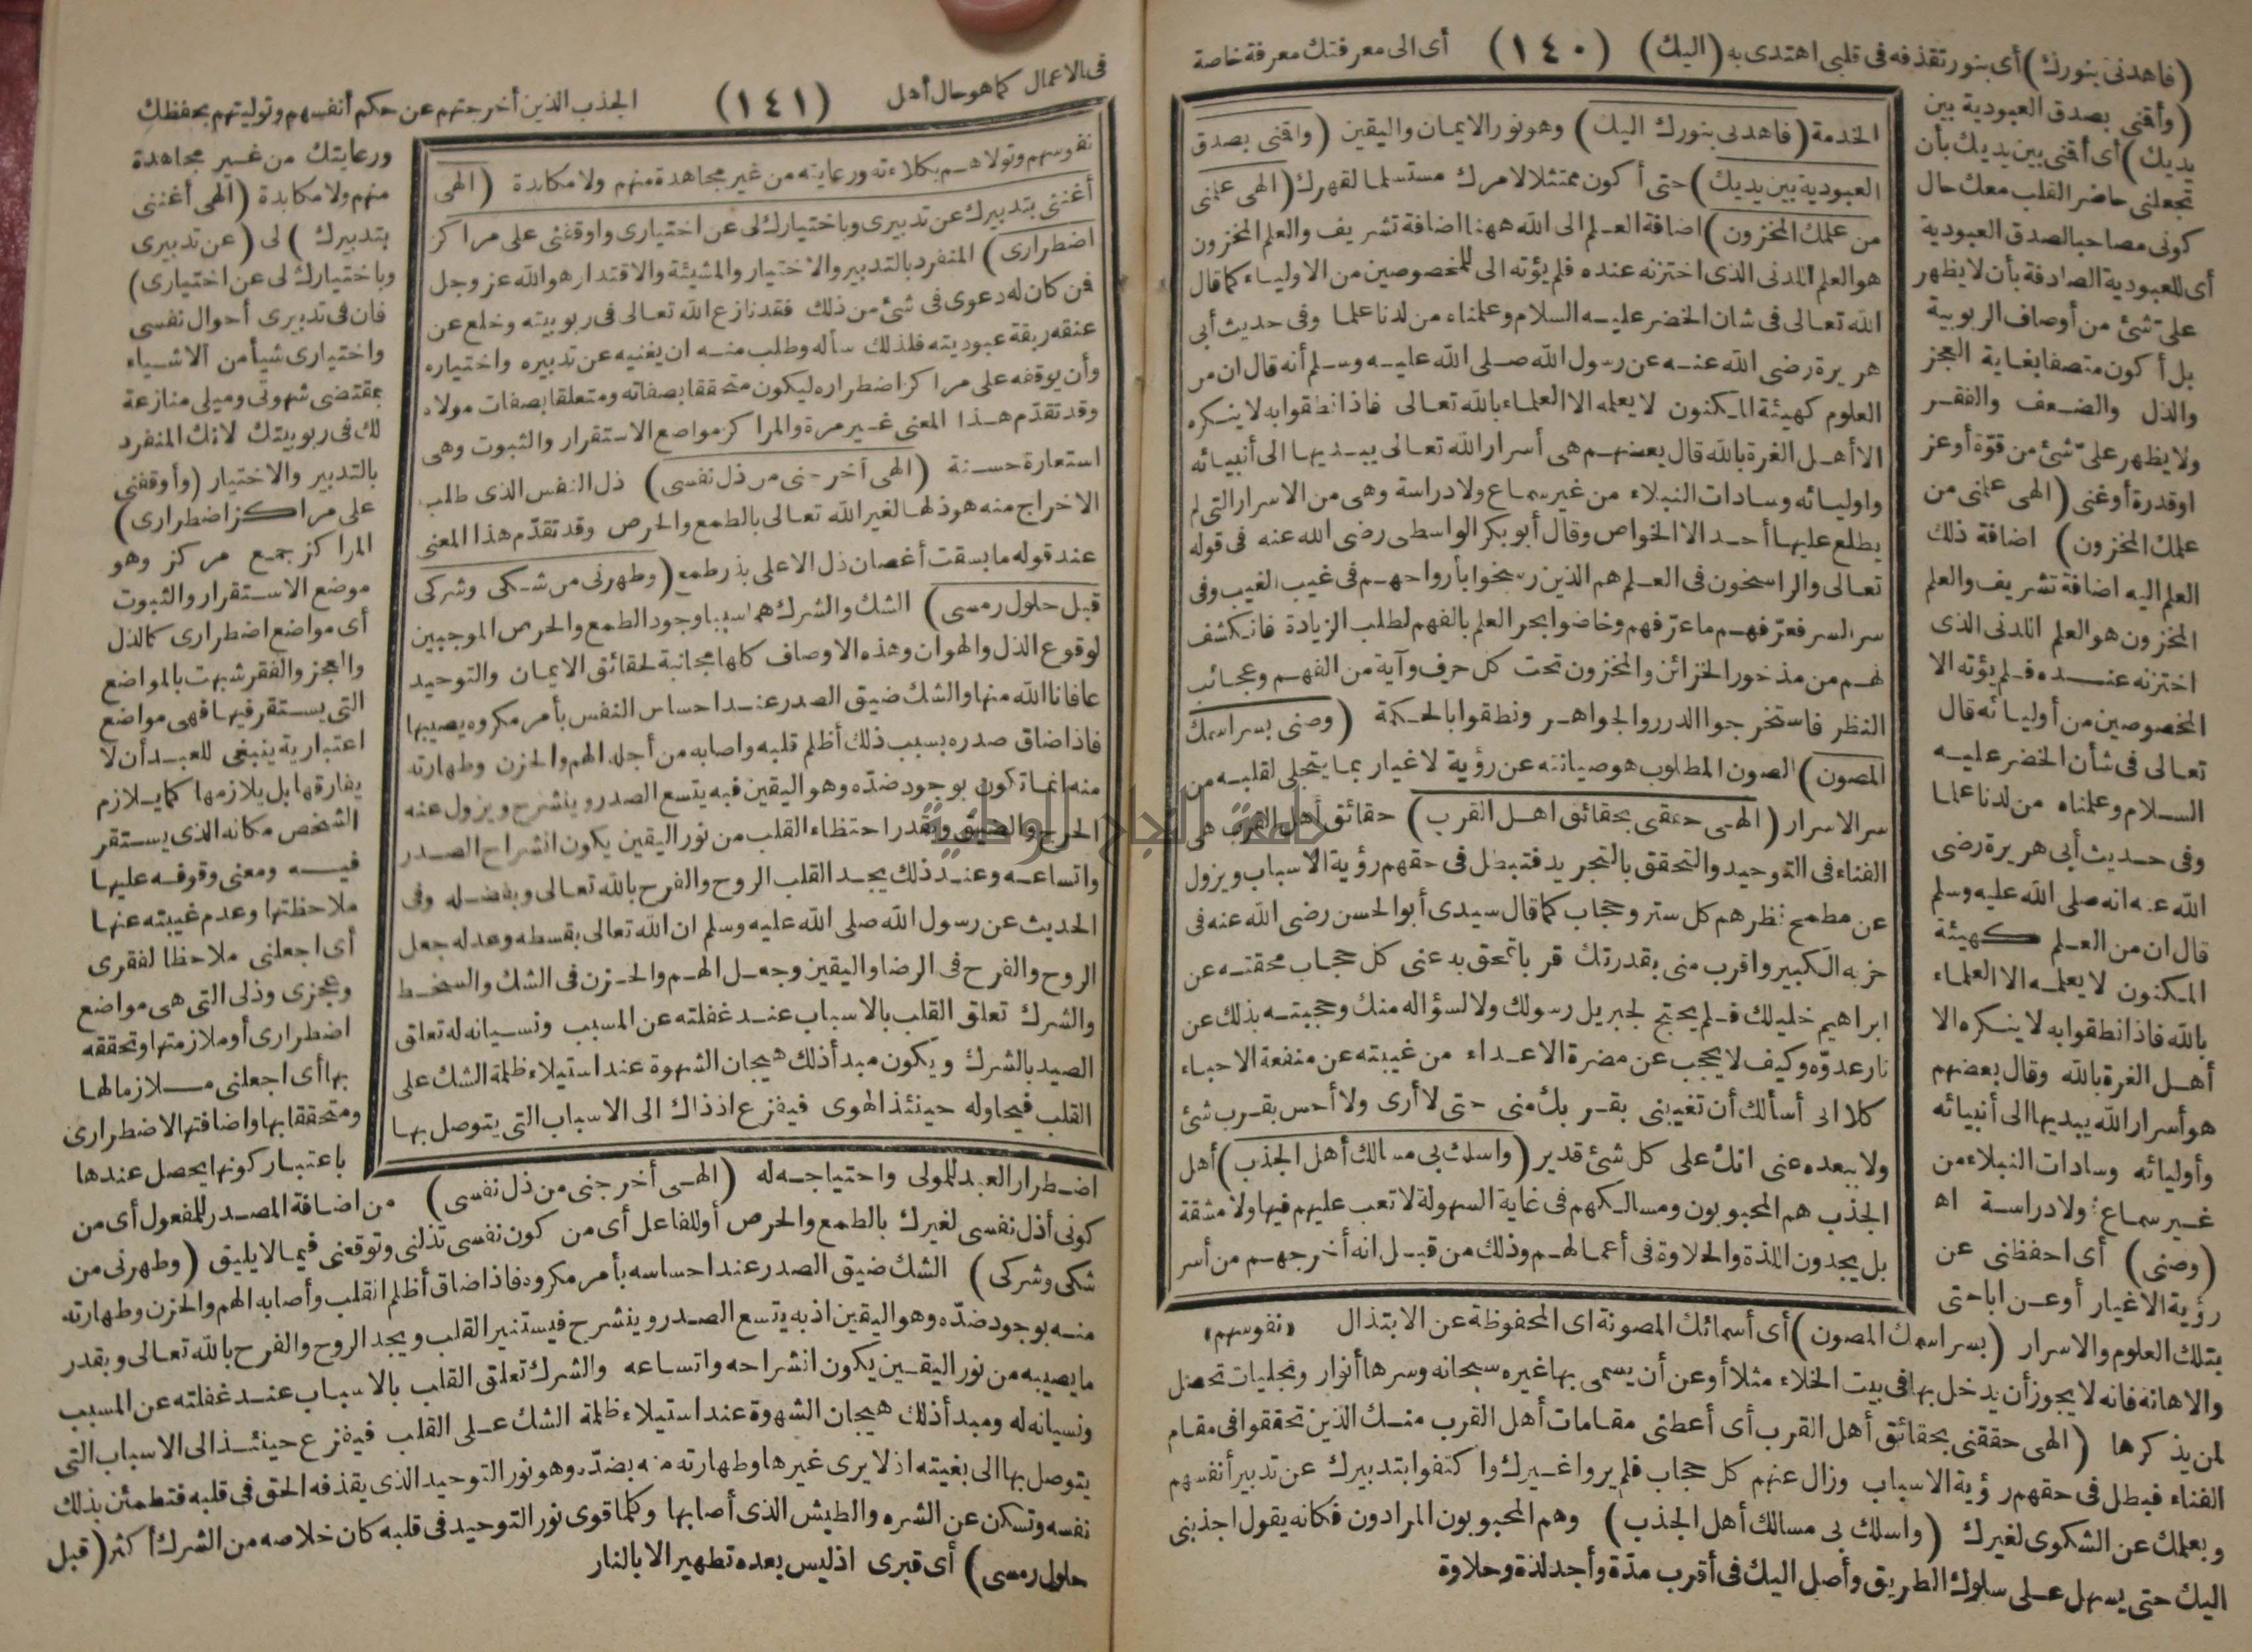 (فاهدنى بنورك) أى بنور تقذفه فى قلبى اهتدى به (اليك) (١٤٠) أى الى معرفتك معرفة خاصة
(وأقنى بصدق العبودية بين
يديك) أى أقنى بين يديك بأن
تجعلنى حاضر القلب معك حال
كونى مصاحبا لصدق العبودية
أى للعبودية الصادقة بأن لا يظهر
علىّ شئ من أوصاف الربوبية
بل أكون متصفا بغاية العجز
والذل والضعف والفقر
ولا يظهر علىّ شئ من قوّة أو عز
او قدرة أو غنى (الهى علمنى من
علمك المخزون) اضافة ذلك
العلم اليه اضافة تشريف والعلم
المخزون هو العلم اللدنى الذى
اختزنه عنده فلم يؤته الا
المخصوصين من أوليائه قال
تعالى فى شأن الخضر عليه
السلام وعلمناه من لدنا علما
وفى حديث أبى هريرة رضى
الله عنه انه صلى الله عليه وسلم
قال ان من العلم كهيئة
المكنون لا يعلمه الا العلماء
بالله فاذا نطقوا به لا ينكره الا
أهل الغرة بالله وقال بعضهم
هو أسرار الله يبديها الى أنبيائه
وأوليائه وسادات النبلاء من
غير سماع ولا دراسة اه
(وصنى) أى احفظنى عن
رؤية الاغيار أو عن اباحتى
الخدمة (فاهدنى بنورك اليك) وهو نور الايمان واليقين (واقنى بصدق
العبودية بين يديك) حتى أكون ممتثلا لامرك مستسلما لقهرك (الهى علمنى
من علمك المخزون) اضافة العلم الى الله ههنا اضافة تشريف والعلم المخزون
هو العلم اللدنى الذى اختزنه عنده فلم يؤته الى للمخصوصين من الاولياء كما قال
الله تعالى فى شان الخضر عليه السلام وعلمناه من لدنا علما وفى حديث أبى
هريرة رضى الله عنه عن رسول الله صلى الله عليه وسلم أنه قال ان من
العلوم كهيئة المكنون لا يعلمه الا العلماء بالله تعالى فاذا نطقوا به لا ينكره
الا أهل الغرة بالله قال بعضهم هى أسرار الله تعالى يبديها الى أنبيائه
واوليائه وسادات النبلاء من غير سماع ولا دراسة وهى من الاسرار التى لم
يطلع عليها أحد الا الخواص وقال أبو بكر الواسطى رضى الله عنه فى قوله
تعالى والراسخون فى العلم هم الذين رسخوا بأرواحهم فى غيب الغيب وفى
سر السر فعرّفهم ما عرّفهم وخاضوا بحر العلم بالفهم لطلب الزيادة فانكشف
لهم من مذخور الخزائن والمخزون تحت كل حرف وآية من الفهم وعجائب
النظر فاستخرجوا الدرر والجواهر ونطقوا بالحكمة (وصنى بسر اسمك
المصون) الصون المطلوب هو صيانته عن رؤية لاغيار بما يتجلى لقلبه من
سر الاسرار (الهى حققنى بحقائق اهل القرب) حقائق أهل القرب هى
الفناء فى التوحيد والتحقق بالتجريد فتبطل فى حقهم رؤية الاسباب ويزول
عن مطمح نظرهم كل ستر وحجاب كما قال سيدى أبو الحسن رضى الله عنه فى
حزبه الكبير واقرب منى بقدرتك قربا تمحق به عنى كل حجاب محقته عن
ابراهيم خليلك فلم يحتج لجبريل رسولك ولا لسؤاله منك وحجبته بذلك عن
نار عدوّه وكيف لا يحجب عن مضرة الاعداء من غيبته عن منفعة الاحباء
كلا انى أسألك أن تغيبنى بقربك منى حتى لا أرى ولا أحس بقرب شئ
ولا ببعده عنى انك على كل شئ قدير (واسلك بى مسالك أهل الجذب) أهل
الجذب هم المحبوبون ومسالكهم فى غاية السهولة لا تعب عليهم فيها ولا مشقة
بل يجدون اللذة والحلاوة فى أعمالهم وذلك من قبل انه أخرجهم من أسر
«نفوسهم»
بتلك العلوم والاسرار (بسر اسمك المصون) أى أسمائك المصونة اى المحفوظة عن الابتذال
والاهانة فانه لا يجوز أن يدخل بها فى بيت الخلاء مثلا أو عن أن يسمى بها غيره سبحانه وسرها أنوار وتجليات تحصل
لمن يذكرها (الهى حققنى بحقائق أهل القرب أى أعطنى مقامات أهل القرب منك الذين تحققوا فى مقام
الفناء فبطل فى حقهم رؤية الاسباب وزال عنهم كل حجاب فلم يروا غيرك واكتفوا بتدبيرك عن تدبير أنفسهم
وبعلمك عن الشكوى لغيرك (واسلك بى مسالك أهل الجذب) وهم المحبوبون المرادون فكانه يقول اجذبنى
اليك حتى يسهل على سلوك الطريق وأصل اليك فى أقرب مدّة وأجد لذة وحلاوة
فى الاعمال كما هو حال أهل (١٤١) الجذب الذين أخرجتهم عن حكم أنفسهم وتوليتهم بحفظك
نفوسهم وتولاهم بكلاءته ورعايته من غير مجاهدة منهم ولا مكابدة (الهى
أغننى بتدبيرك عن تدبيرى وباختيارك لى عن اختيارى واوقفنى على مراكز
اضطرارى) المنفرد بالتدبير والاختيار والمشيئة والاقتدار هو الله عز وجل
فمن كان له دعوى فى شئ من ذلك فقد نازع الله تعالى فى ربوبيته وخلع عن
عنقه ربقة عبوديته فلذلك سأله وطلب منه ان يغنيه عن تدبيره واختياره
وأن يوقفه على مراكز اضطراره ليكون متحققا بصفاته ومتعلقا بصفات مولاه
وقد تقدّم هذا المعنى غير مرة والمراكز مواضع الاستقرار والثبوت وهى
استعارة حسنة (الهى أخرجنى من ذل نفسى) ذل النفس الذى طلب
الاخراج منه هو ذلها لغير الله تعالى بالطمع والحرص وقد تقدّم هذا المعنى
عند قوله ما بسقت أغصان ذل الا على بذر طمع (وطهرنى من شكى وشركى
قبل حلول رمسى) الشك والشرك هما سببا وجود الطمع والحرص الموجبين
لوقوع الذل والهوان وهذه الاوصاف كلها مجانبة لحقائق الايمان والتوحيد
عافانا الله منها والشك ضيق الصدر عند احساس النفس بأمر مكروه يصيبها
فاذا ضاق صدره بسبب ذلك أظلم قلبه واصابه من أجله الهم والحزن وطهارته
منه انما تكون بوجود ضدّه وهو اليقين فبه يتسع الصدر وينشرح ويزول عنه
الحرج والضيق وبقدر احتظاء القلب من نور اليقين يكون انشراح الصدر
واتساعه وعند ذلك يجد القلب الروح والفرح بالله تعالى وبفضله وفى
الحديث عن رسول الله صلى الله عليه وسلم ان الله تعالى بقسطه وعدله جعل
الروح والفرح فى الرضا واليقين وجعل الهم والحزن فى الشك والسخط
والشرك تعلق القلب بالاسباب عند غفلته عن المسبب ونسيانه له تعلق
الصيد بالشرك ويكون مبدأ ذلك هيجان الشهوة عند استيلاء ظلمة الشك على
القلب فيحاوله حينئذ الهوى فيفزع اذ ذاك الى الاسباب التى يتوصل بها
ورعايتك من غير مجاهدة
منهم ولا مكابدة (الهى أغننى
بتدبيرك) لى (عن تدبيرى
وباختيارك لى عن اختيارى)
فان فى تدبيرى أحوال نفسى
واختيارى شيأ من الاشياء
بمقتضى شهوتى وميلى منازعة
لك فى ربوبيتك لانك المنفرد
بالتدبير والاختيار (وأوقفنى
على مراكز اضطرارى)
المراكز جمع مركز وهو
موضع الاستقرار والثبوت
أى مواضع اضطرارى كالذل
والعجز والفقر شبهت بالمواضع
التى يستقر فيها فهى مواضع
اعتبارية ينبغى للعبد أن لا
يفارقها بل يلازمها كما يلازم
الشخص مكانه الذى يستقر
فيه ومعنى وقوفه عليها
ملاحظتها وعدم غيبته عنها
أى اجعلنى ملاحظا لفقرى
وعجزى وذلى التى هى مواضع
اضطرارى أو ملازمتها وتحققه
بها أى اجعلنى ملازما لها
ومتحققا بها واضافتها الاضطرارى
باعتبار كونها يحصل عندها
اضطرار العبد للمولى واحتياجه له (الهى أخرجنى من ذل نفسى) من اضافة المصدر للمفعول أى من
كونى أذل نفسى لغيرك بالطمع والحرص أو للفاعل أى من كون نفسى تذلنى وتوقعنى فيما لا يليق (وطهرنى من
شكى وشركى) الشك ضيق الصدر عند احساسه بأمر مكروه فاذا ضاق أظلم القلب وأصابه الهم والحزن وطهارته
منه بوجود ضدّه وهو اليقين اذ به يتسع الصدر وينشرح فيستنير القلب ويجد الروح والفرح بالله تعالى وبقدر
ما يصيبه من نور اليقين يكون انشراحه واتساعه والشرك تعلق القلب بالاسباب عند غفلته عن المسبب
ونسيانه له ومبدأ ذلك هيجان الشهوة عند استيلاء ظلمة الشك على القلب فيفزع حينئذ الى الاسباب التى
يتوصل بها الى بغيته اذ لا يرى غيرها وطهارته منه بضدّه وهو نور التوحيد الذى يقذفه الحق فى قلبه فتطمئن بذلك
نفسه وتسكن عن الشره والطيش الذى أصابها وكلما قوى نور التوحيد فى قلبه كان خلاصه من الشرك أكثر (قبل
حلول رمسى) أى قبرى اذ ليس بعده تطهير الا بالنار
جامعة النجاح الوطنية